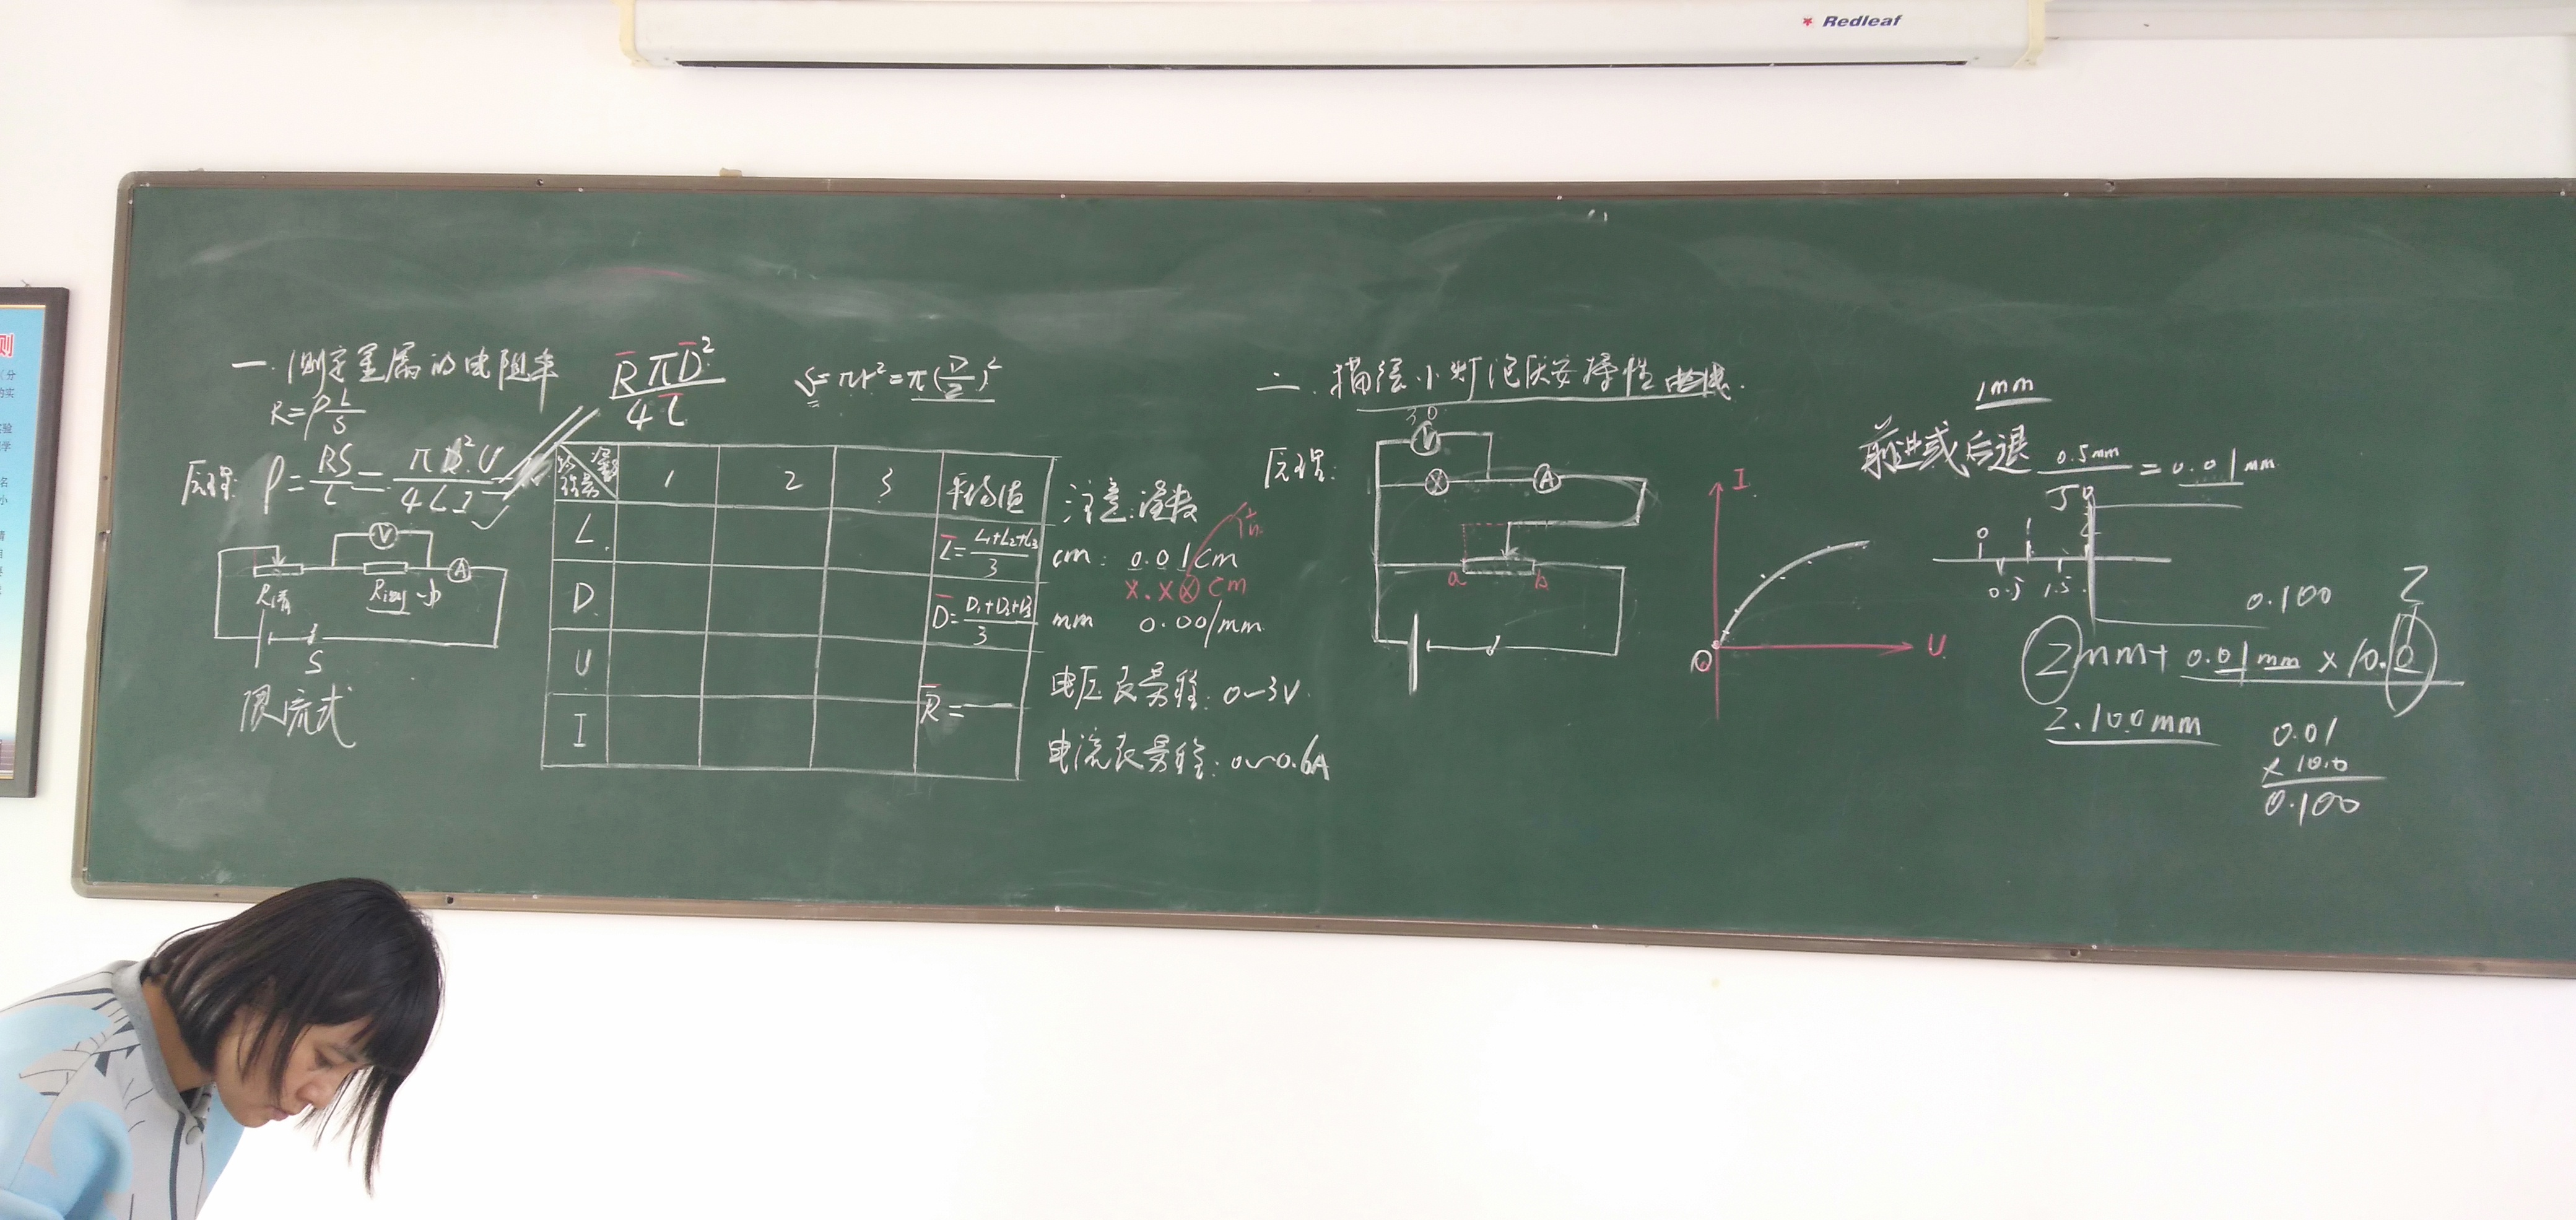 Redleaf
一. 测定金属的电阻率
R=ρL/S
R̄πD̄²/4L̄
S=πr²=π(D/2)²
原理: ρ=RS/L=πD²U/4LI
V
A
R滑
R测
小
S
限流式
1 2 3 平均值
L L̄=(L₁+L₂+L₃)/3
D D̄=(D₁+D₂+D₃)/3
U
I R̄=
注意:读数
cm: 0.01cm
x.xⓧcm
mm 0.001mm
电压表量程: 0~3V
电流表量程: 0~0.6A
二. 描绘小灯泡伏安特性曲线.
原理:
3.0
V
A
a b
I
U
O
1mm
前进或后退 0.5mm/50=0.01mm
0 1
0.5 1.5
0.100
2mm+0.01mm×10.0
2.100mm
0.01
×10.0
0.100